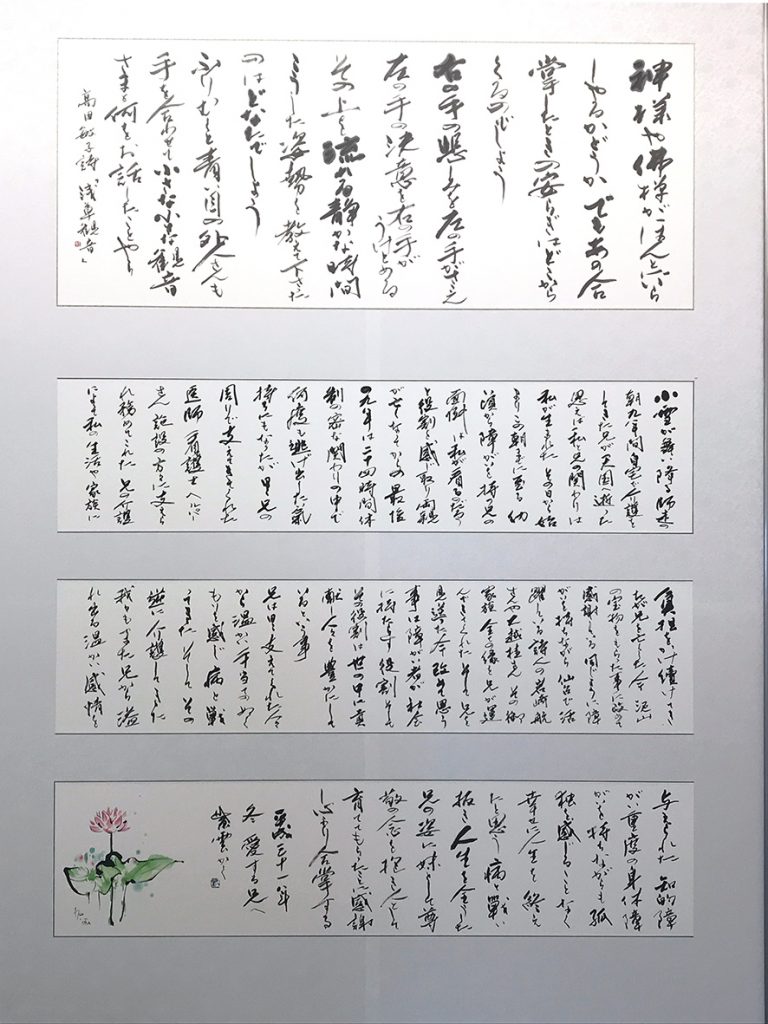 神様や佛様がほんとにいら
しゃるかどうか でもあの合
掌したときの安らぎはどこから
くるのでしょう
右の手の悲しみを左の手がささえ
左の手の決意を右の手が
うけとめる
その上を流れる静かな時間
こうした姿勢を教えて下さった
のはどなたでしょう
ふりむくと青い目の外人さんも
手を合わせて小さな小さな観音
さまと何をお話したことやら
高田敏子詩「浅草観音」
小雪が舞い降る師走の
朝九年間自宅で介護を
してきた兄が天国へ逝った
思えば私と兄の関わりは
私が生まれたその日から始
まりこの朝までに至る 幼
い頃から障がいを持つ兄の
面倒は私が看るのだ
と役割を感じ取り両親
が亡くなってからの最後
の九年は二十四時間体
制の密な関わりの中で
何度も逃げ出したい氣
持ちにもなったが 兄の
周りで支えて下さった
医師 看護士 ヘルパー
さん 施設の方々に支えら
れ務めてこられた 兄の介護
によって私の生活や家族に
負担をかけ続けてき
たが兄を亡くした今 沢山
の宝物をもらった事に改めて
感謝している 同じように障
がいを持ちながら 仙台で活
躍している詩人の岩崎航
さんや大越桂さん その御
家族との縁も兄が運
んできてくれた そして兄を
見送った今 改めて思う
事は障がい者が社会
に持たす役割 そして
その役割は世の中に貢
献し人々を豊かにして
いるという事
兄は支えてくれた人々
から温かい手当てを
もらい感じ 病と戦
ってきた そしてその
様に介護してきた
我々もまた兄から溢
れ出る温かい感情を
与えられた 知的障
がい重度の身体障
がいを持ちながらも孤
独を感じることなく
幸せに人生を終え
たと思う 病と戦い
抜き人生を全うした
兄の姿に妹として尊
敬の念を抱き人として
育ててもらったことに感謝
し心より合掌する
平成三十一年
冬 愛する兄へ
紫雲かく